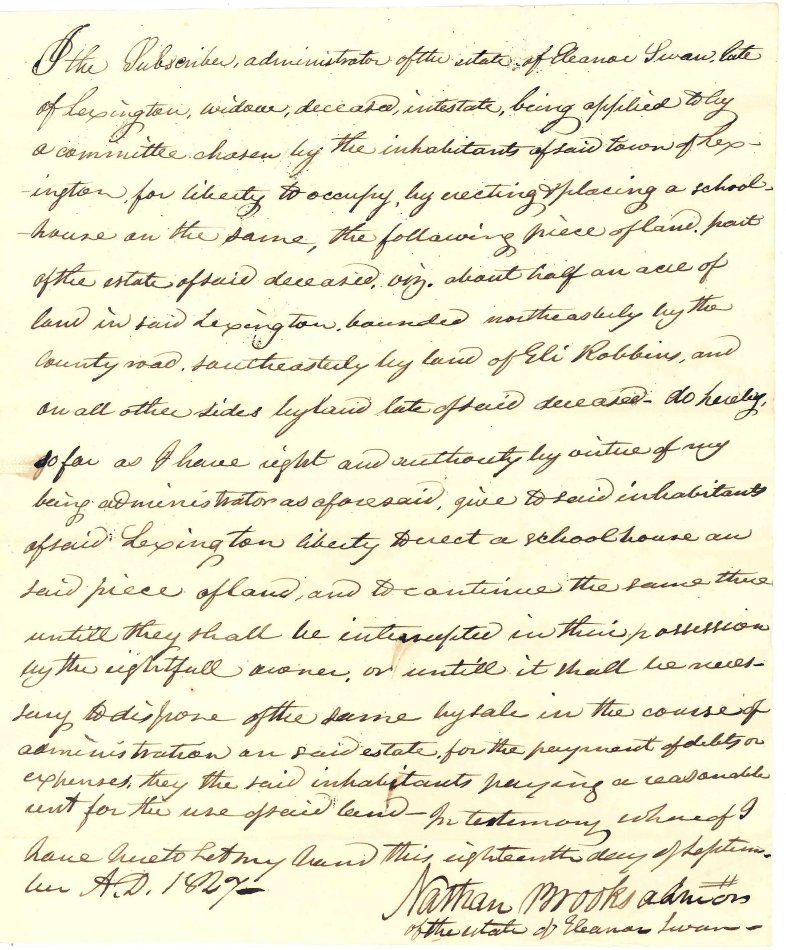 I the Subscriber, administrator of the estate of Eleanor Swan, late
of Lexington, widow, deceased, intestate, being applied to by
a committee chosen by the inhabitants of said town of Lex-
-ington, for liberty to occupy, by erecting & placing a school-
-house on the same, the following piece of land, part
of the estate of said deceased, viz. about half an acre of
land in said Lexington, bounded northeasterly by the
county road, southeasterly by land of Eli Robbins, and
on all other sides by land late of said deceased - do hereby,
so far as I have right and authority by virtue of my
being administrator as aforesaid, give to said inhabitants
of said Lexington liberty to erect a schoolhouse on
said piece of land, and to continue the same there
untill they shall be interrupted in their possession
by the rightfull owner, or untill it shall be neces-
sary to dispose of the same by sale in the course of
administration on said estate, for the payment of debts or
expenses, they the said inhabitants paying a reasonable
rent for the use of said land - In testimony whereof I
have hereto set my hand this eighteenth day of Septem-
ber A.D. 1827-
Nathan Brooks admors
of the estate of Eleanor Swan -